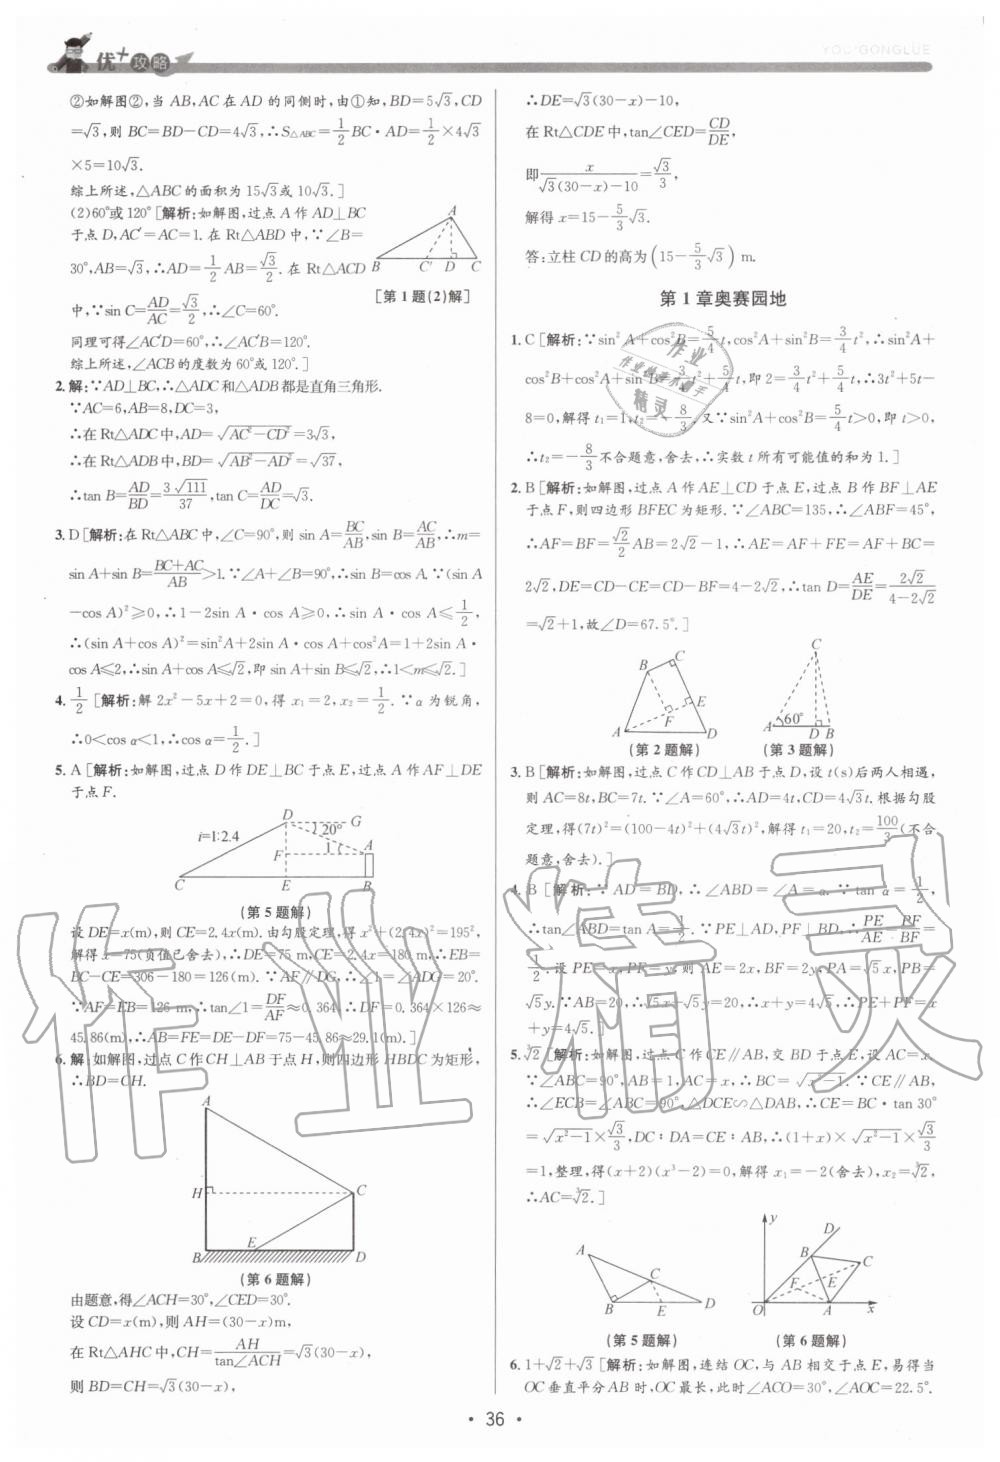 优+攻略
YOU+GONGLUE
②如解图②,当 AB,AC 在 AD 的同侧时,由①知,BD=5√3,CD
=√3,则 BC=BD-CD=4√3,∴S△ABC=1/2 BC·AD=1/2×4√3
×5=10√3.
综上所述,△ABC 的面积为 15√3或 10√3.]
(2)60°或120° [解析:如解图,过点 A 作 AD⊥BC
于点 D,AC′=AC=1.在 Rt△ABD 中,∵∠B=
30°,AB=√3,∴AD=1/2 AB=√3/2.在 Rt△ACD
中,∵sin C=AD/AC=√3/2,∴∠C=60°.
A
B C′ D C
[第 1 题(2)解]
同理可得∠AC′D=60°,∴∠AC′B=120°.
综上所述,∠ACB 的度数为 60°或 120°.]
2.解:∵AD⊥BC,∴△ADC和△ADB都是直角三角形.
∵AC=6,AB=8,DC=3,
∴在 Rt△ADC中,AD=√(AC²-CD²)=3√3,
∴在 Rt△ADB中,BD=√(AB²-AD²)=√37,
∴tan B=AD/BD=3√111/37,tan C=AD/DC=√3.
3. D [解析:在 Rt△ABC 中,∠C=90°,则 sin A=BC/AB,sin B=AC/AB,∴m=
sin A+sin B=(BC+AC)/AB>1.∵∠A+∠B=90°,∴sin B=cos A.∵(sin A
-cos A)²≥0,∴1-2sin A·cos A≥0,∴sin A·cos A≤1/2,
∴(sin A+cos A)²=sin²A+2sin A·cos A+cos²A=1+2sin A·
cos A≤2,∴sin A+cos A≤√2,即 sin A+sin B≤√2,∴1<m≤√2.]
4. 1/2 [解析:解 2x²-5x+2=0,得 x₁=2,x₂=1/2.∵α 为锐角,
∴0<cos α<1,∴cos α=1/2.]
5. A [解析:如解图,过点 D 作 DE⊥BC 于点 E,过点 A 作 AF⊥DE
于点 F.
i=1:2.4
D G
20°
1
F A
C E B
(第 5 题解)
设 DE=x(m),则 CE=2.4x(m).由勾股定理,得 x²+(2.4x)²=195²,
解得 x=75(负值已舍去),∴DE=75 m,CE=2.4x=180 m,∴EB=
BC-CE=306-180=126(m).∵AF∥DG,∴∠1=∠ADG=20°.
∵AF=EB=126 m,∴tan∠1=DF/AF≈0.364,∴DF=0.364×126≈
45.86(m),∴AB=FE=DE-DF=75-45.86≈29.1(m).]
6.解:如解图,过点 C 作 CH⊥AB 于点 H,则四边形 HBDC 为矩形,
∴BD=CH.
A
H C
B E D
(第 6 题解)
由题意,得∠ACH=30°,∠CED=30°.
设 CD=x(m),则 AH=(30-x)m,
在 Rt△AHC 中,CH=AH/tan∠ACH=√3(30-x),
则 BD=CH=√3(30-x),
∴DE=√3(30-x)-10,
在 Rt△CDE 中,tan∠CED=CD/DE,
即 x/(√3(30-x)-10)=√3/3,
解得 x=15-5/3√3.
答:立柱 CD 的高为(15-5/3√3) m.
第 1 章奥赛园地
1. C [解析:∵sin²A+cos²B=5/4 t,cos²A+sin²B=3/4 t²,∴sin²A+
cos²B+cos²A+sin²B=3/4 t²+5/4 t,即 2=3/4 t²+5/4 t,∴3t²+5t-
8=0,解得 t₁=1,t₂=-8/3.又∵sin²A+cos²B=5/4 t>0,即 t>0,
∴t₂=-8/3不合题意,舍去,∴实数 t 所有可能值的和为 1.]
2. B [解析:如解图,过点 A 作 AE⊥CD 于点 E,过点 B 作 BF⊥AE
于点 F,则四边形 BFEC 为矩形.∵∠ABC=135,∴∠ABF=45°,
∴AF=BF=√2/2 AB=2√2-1,∴AE=AF+FE=AF+BC=
2√2,DE=CD-CE=CD-BF=4-2√2,∴tan D=AE/DE=2√2/(4-2√2)
=√2+1,故∠D=67.5°.]
B C
F E
A D
(第 2 题解)
C
A 60° D B
(第 3 题解)
3. B [解析:如解图,过点 C 作 CD⊥AB 于点 D,设 t(s)后两人相遇,
则 AC=8t,BC=7t.∵∠A=60°,∴AD=4t,CD=4√3t.根据勾股
定理,得(7t)²=(100-4t)²+(4√3t)²,解得 t₁=20,t₂=100/3(不合
题意,舍去).]
4. B [解析:∵AD=BD,∴∠ABD=∠A=α.∵tan α=1/2,
∴tan∠ABD=tan A=1/2.∵PE⊥AD,PF⊥BD,∴PE/AE=PF/BF=
1/2.设 PE=x,PF=y,则 AE=2x,BF=2y,PA=√5x,PB=
√5y.∵AB=20,∴√5x+√5y=20,∴x+y=4√5,∴PE+PF=x
+y=4√5.]
5. ∛2 [解析:如解图,过点 C 作 CE∥AB,交 BD 于点 E,设 AC=x.
∵∠ABC=90°,AB=1,AC=x,∴BC=√(x²-1).∵CE∥AB,
∴∠ECB=∠ABC=90°,△DCE∽△DAB,∴CE=BC·tan 30°
=√(x²-1)×√3/3,DC:DA=CE:AB,∴(1+x)×√(x²-1)×√3/3
=1,整理,得(x+2)(x³-2)=0,解得 x₁=-2(舍去),x₂=∛2,
∴AC=∛2.]
A
C
B E D
(第 5 题解)
y D
B C
F E
O A x
(第 6 题解)
6. 1+√2+√3 [解析:如解图,连结 OC,与 AB 相交于点 E,易得当
OC 垂直平分 AB 时,OC 最长,此时∠ACO=30°,∠AOC=22.5°.
· 36 ·
作业精灵